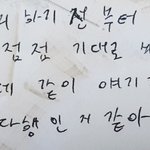 하기 전 부터
점점 기대로
같이 얘기
다행인 거 같아